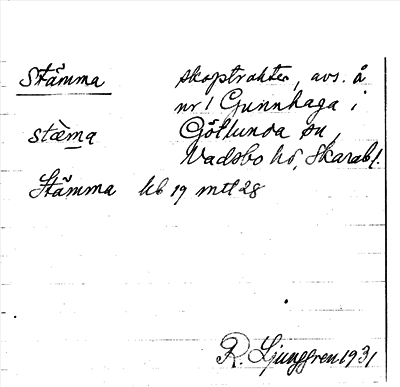 Stämma skogstrakter, avs. å
nr 1 Gunnhaga i
stæ̀mạ Götlunda sn,
Vadsbo hd, Skarab l.
Stämma kb 19 mtl 28
R. Ljunggren 1931